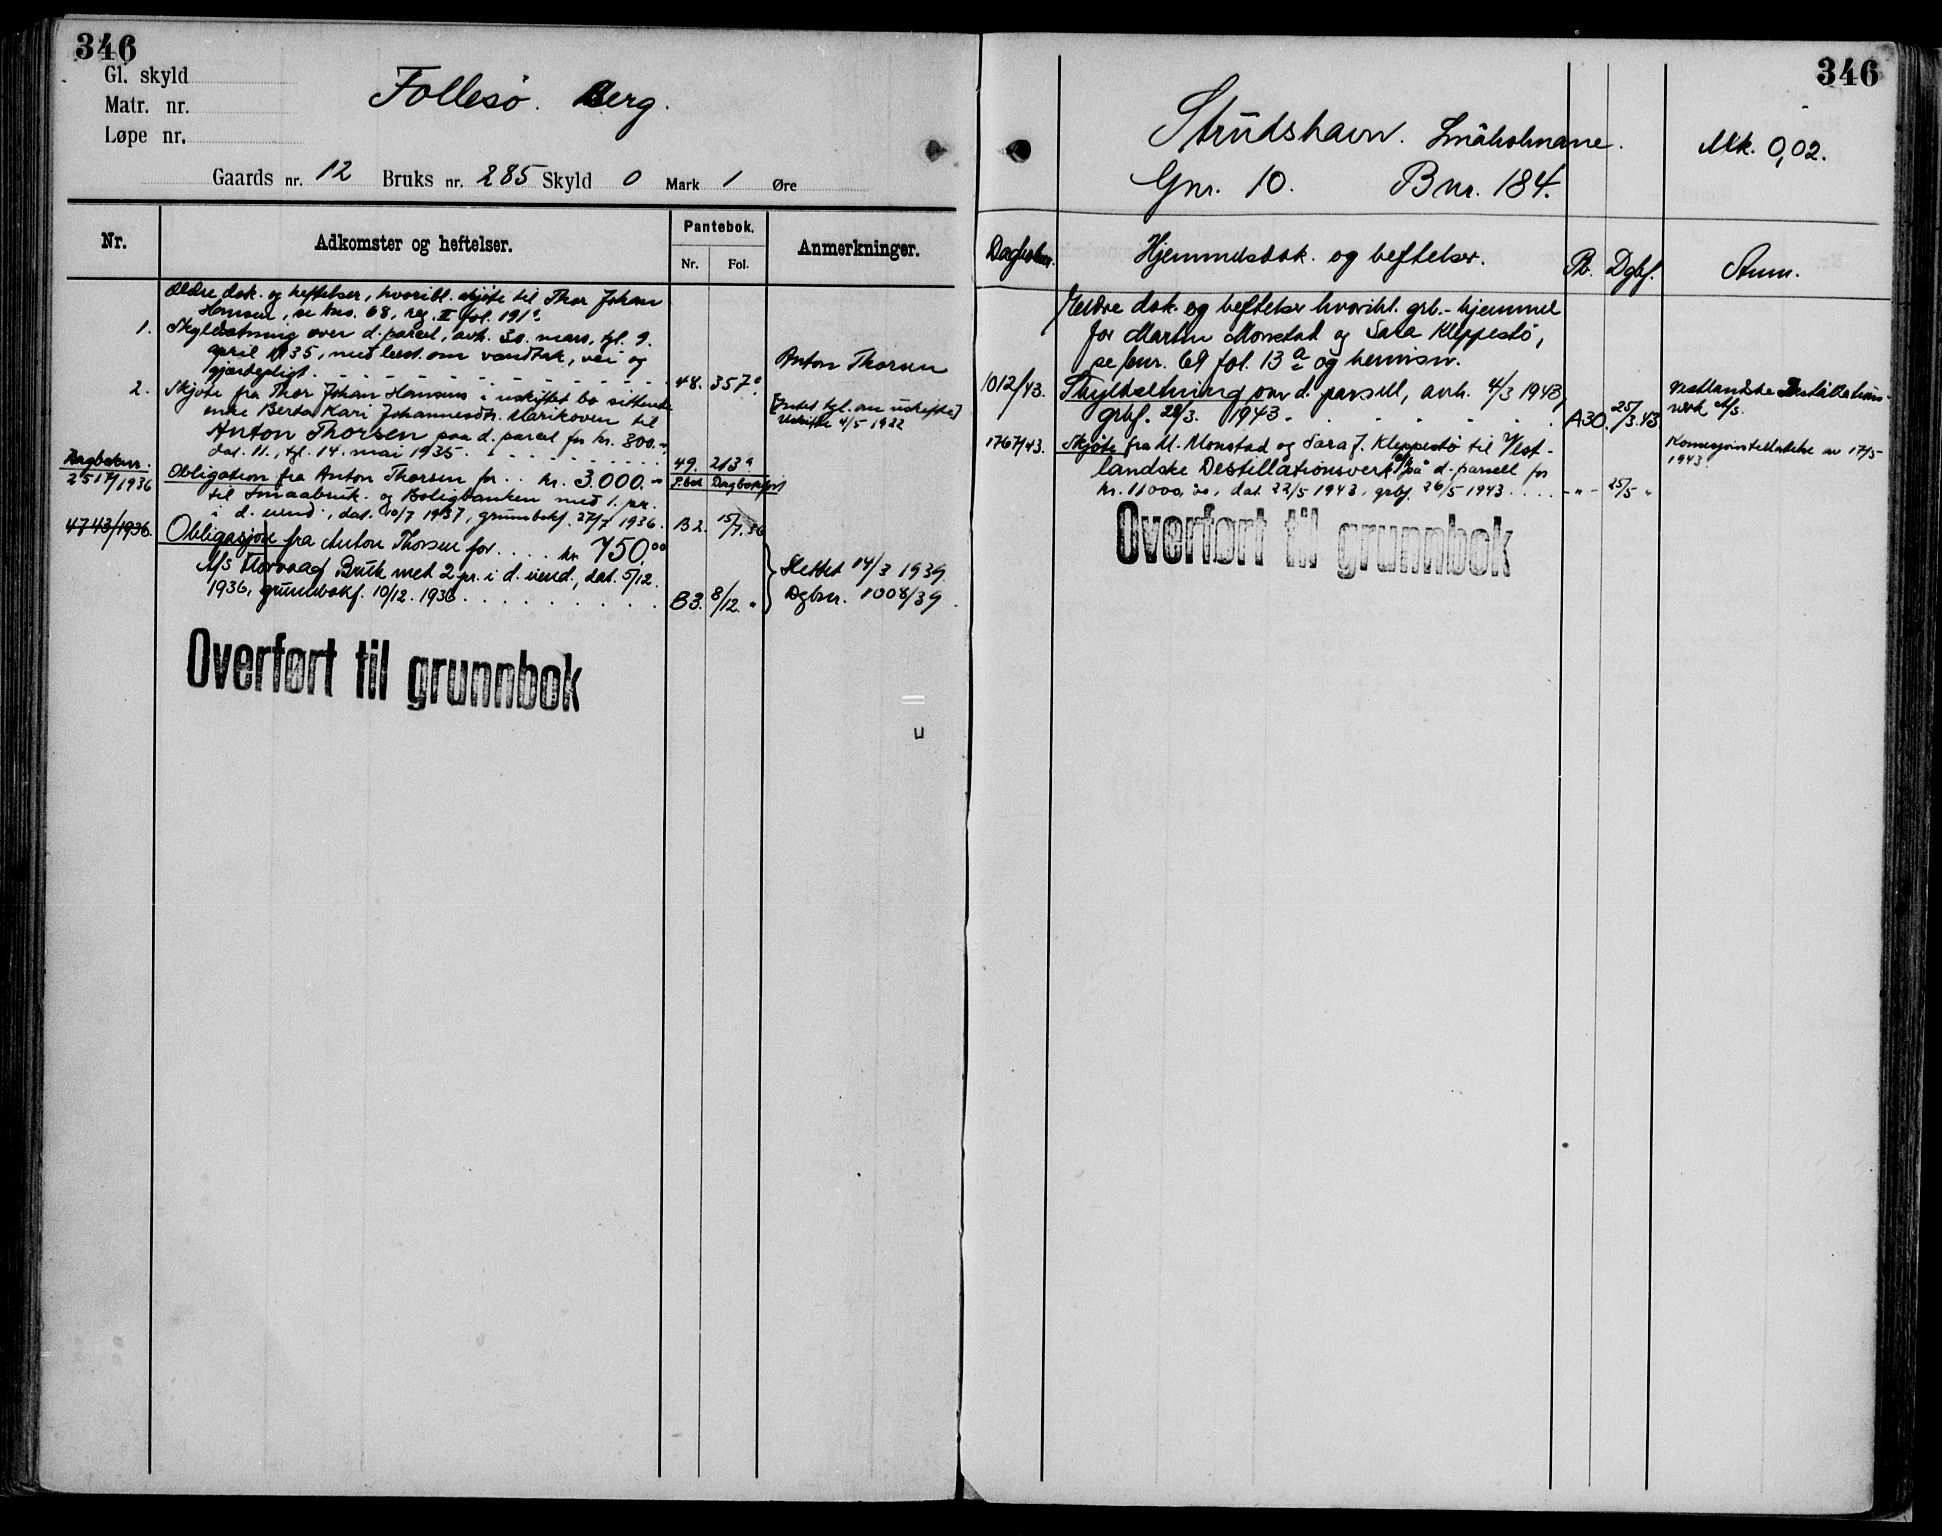 346
Gl. skyld
Matr. nr.
Løpe nr.
Follesø. Berg.
Gaards nr. 12 Bruks nr. 285 Skyld 0 Mark 1 Øre
Nr.
Adkomster og heftelser.
Pantebok.
Nr. Fol.
Anmerkninger.
Ældre dok. og heftelser, hvoribl. skjøte til Thor Johan
Hansen, se bns. 68, reg. II fol. 191
1. Skyldsetning over d. parcel, avh. 30. mars, tgl. 9.
april 1935, med best. om vandtak, vei og
gjærdepligt. 48. 357
Anton Thorsen
2. Skjøte fra Thor Johan Hansens i uskiftet bo sittende
enke Berta Kari Johannesdtr. Marikoven til
Anton Thorsen paa d. parcel for kr. 800.-
dat. 11., tgl. 14. mai 1935. 49. 213
[Intet tgl. om uskiftet]
Uskifte 4/5 1922
Dagboknr. P.bok Dagbokført
2517/1936 Obligation fra Anton Thorsen for .. kr. 3.000.-
til Smaabruk. og Boligbanken med 1. pr.
i d. eiend., dat. 20/7 1937, grunnbokf. 27/7 1936. B2. 15/7. 36
4743/1936. Obligasjon fra Anton Thorsen for .... kr. 750.00
A/S Norvaag Bruk met 2 pr. i d. eiend., dat. 5/12.
1936, grunnbokf. 10/12. 1936 B3. 8/12. "
Slettet 14/3 1939
Dgbnr. 1008/39.
Overført til grunnbok
346
Strudshavn. Småholmane.
Mk. 0,02.
Gnr. 10. Bnr. 184.
Dagboknr. Hjemmelsdok. og heftelser. Pb. Dgbf. Anm.
Ældre dok. og heftelser hvoribl. grb.-hjemmel
for Martin Monstad og Sara Kleppestø,
se bnr. 69 fol. 13 a og henvisn.
1012/43. Skyldsetning over d. parsell, avh. 4/3 1943,
grbf. 28/3. 1943. A30. 25/3.43
Vestlandske Destillations-
verk A/S.
1767/43. Skjøte fra M. Monstad og Sara J. Kleppestø til Vest-
landske Destillationsverk A/S på d. parsell for
kr. 11000,00, dat. 22/5 1943, grbf. 26/5 1943 .... -"- 25/5 "
Konsesjonstillatelse av 17/5
1943.
Overført til grunnbok